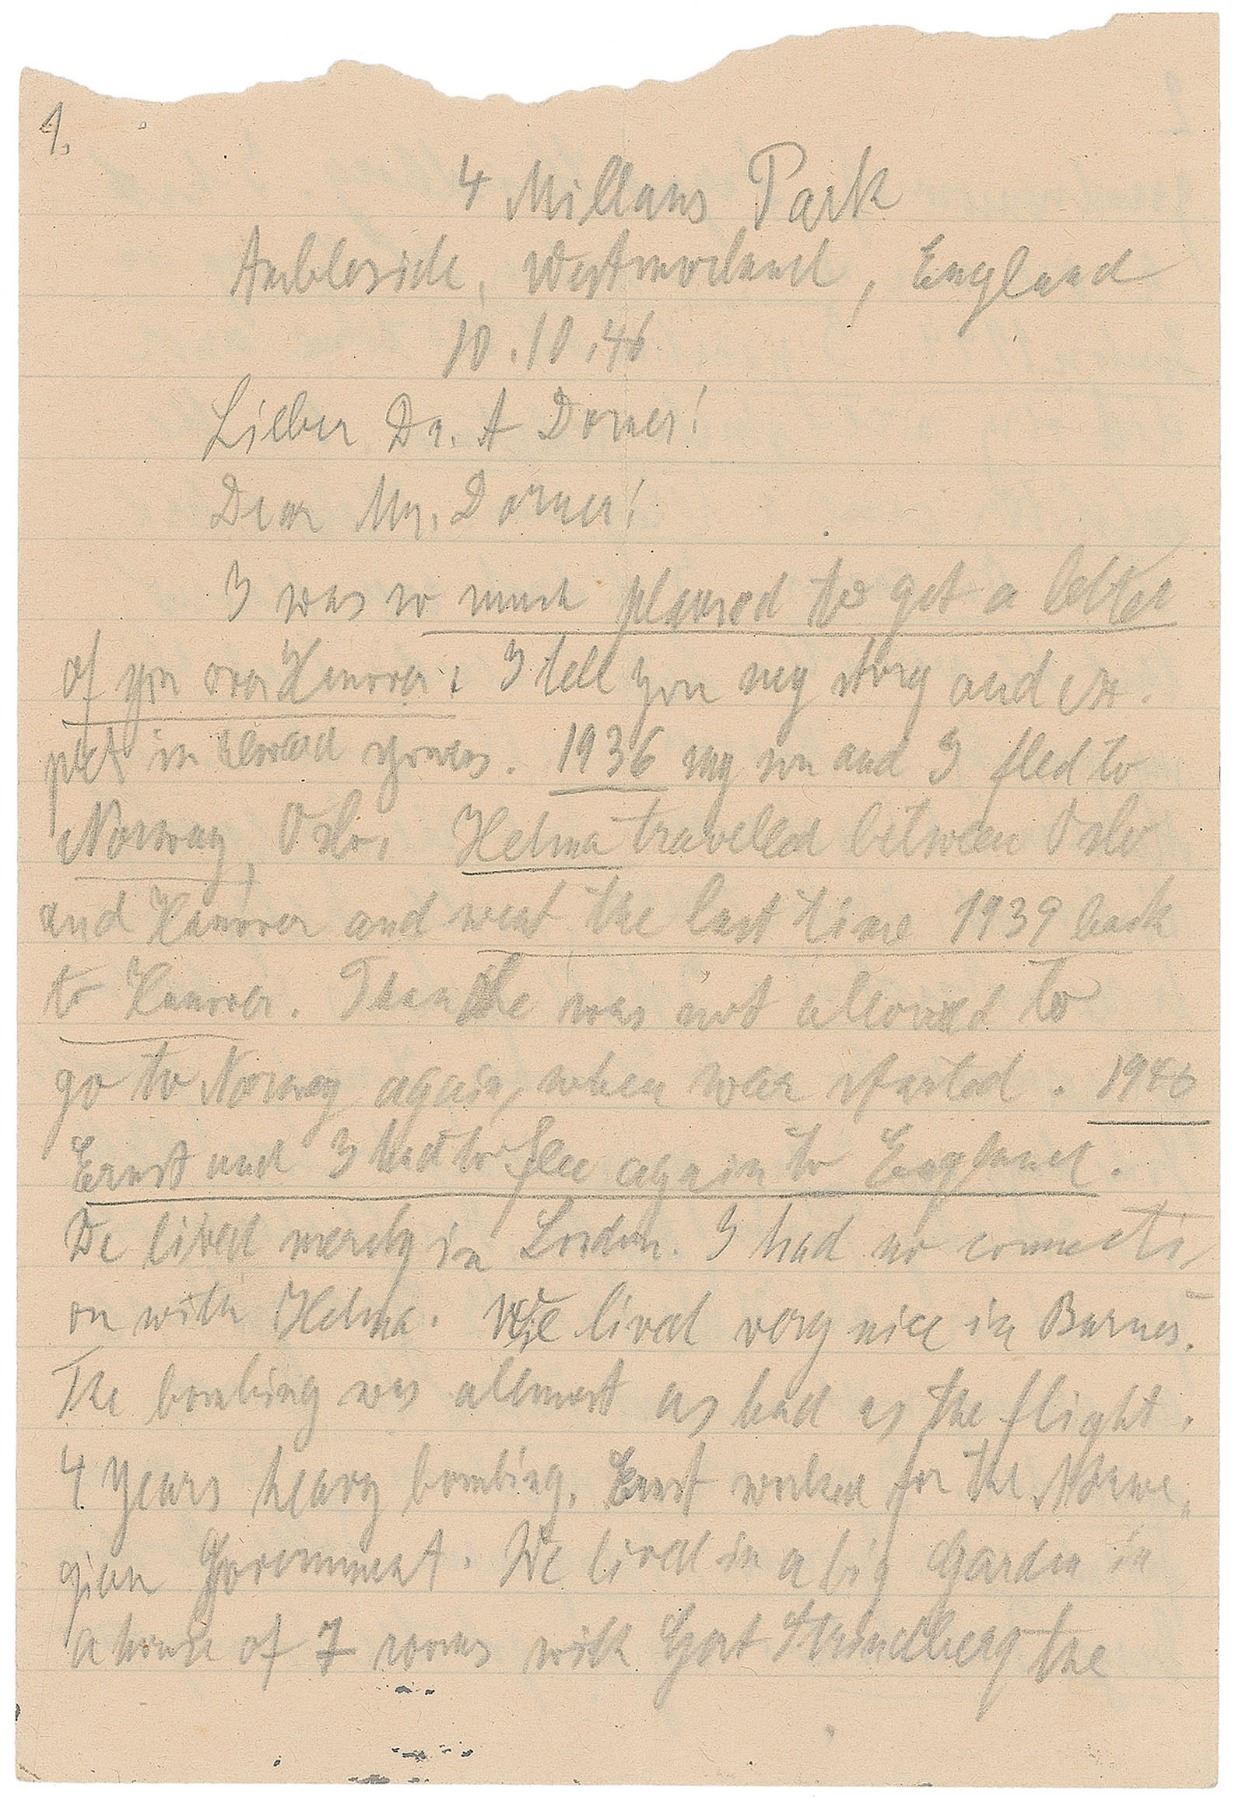 1.
4 Millans Park
Ambleside, Westmorland, England
10.10.46
Lieber Dr. A Dorner!
Dear Mr. Dorner!
I was so much pleased to get a letter
of you over Hanover. I tell you my story and ex-
pect in
1936 my son and I fled to
Norway, Oslo. Helma travelled between Oslo
and Hanover and went the last time 1939 back
to Hanover. Then she was not allowed to
go to Norway again, when war started. 1940
Ernst and I had to flee again to England.
We lived merely in London. I had no connecti-
on with Helma. We lived very nice in Barnes.
The bombing was allmost as bad as the flight.
4 years heavy bombing. Ernst worked for the Norwe-
gian Government. We lived in a big Garden in
a house of 7 rooms with Gert Strindberg the